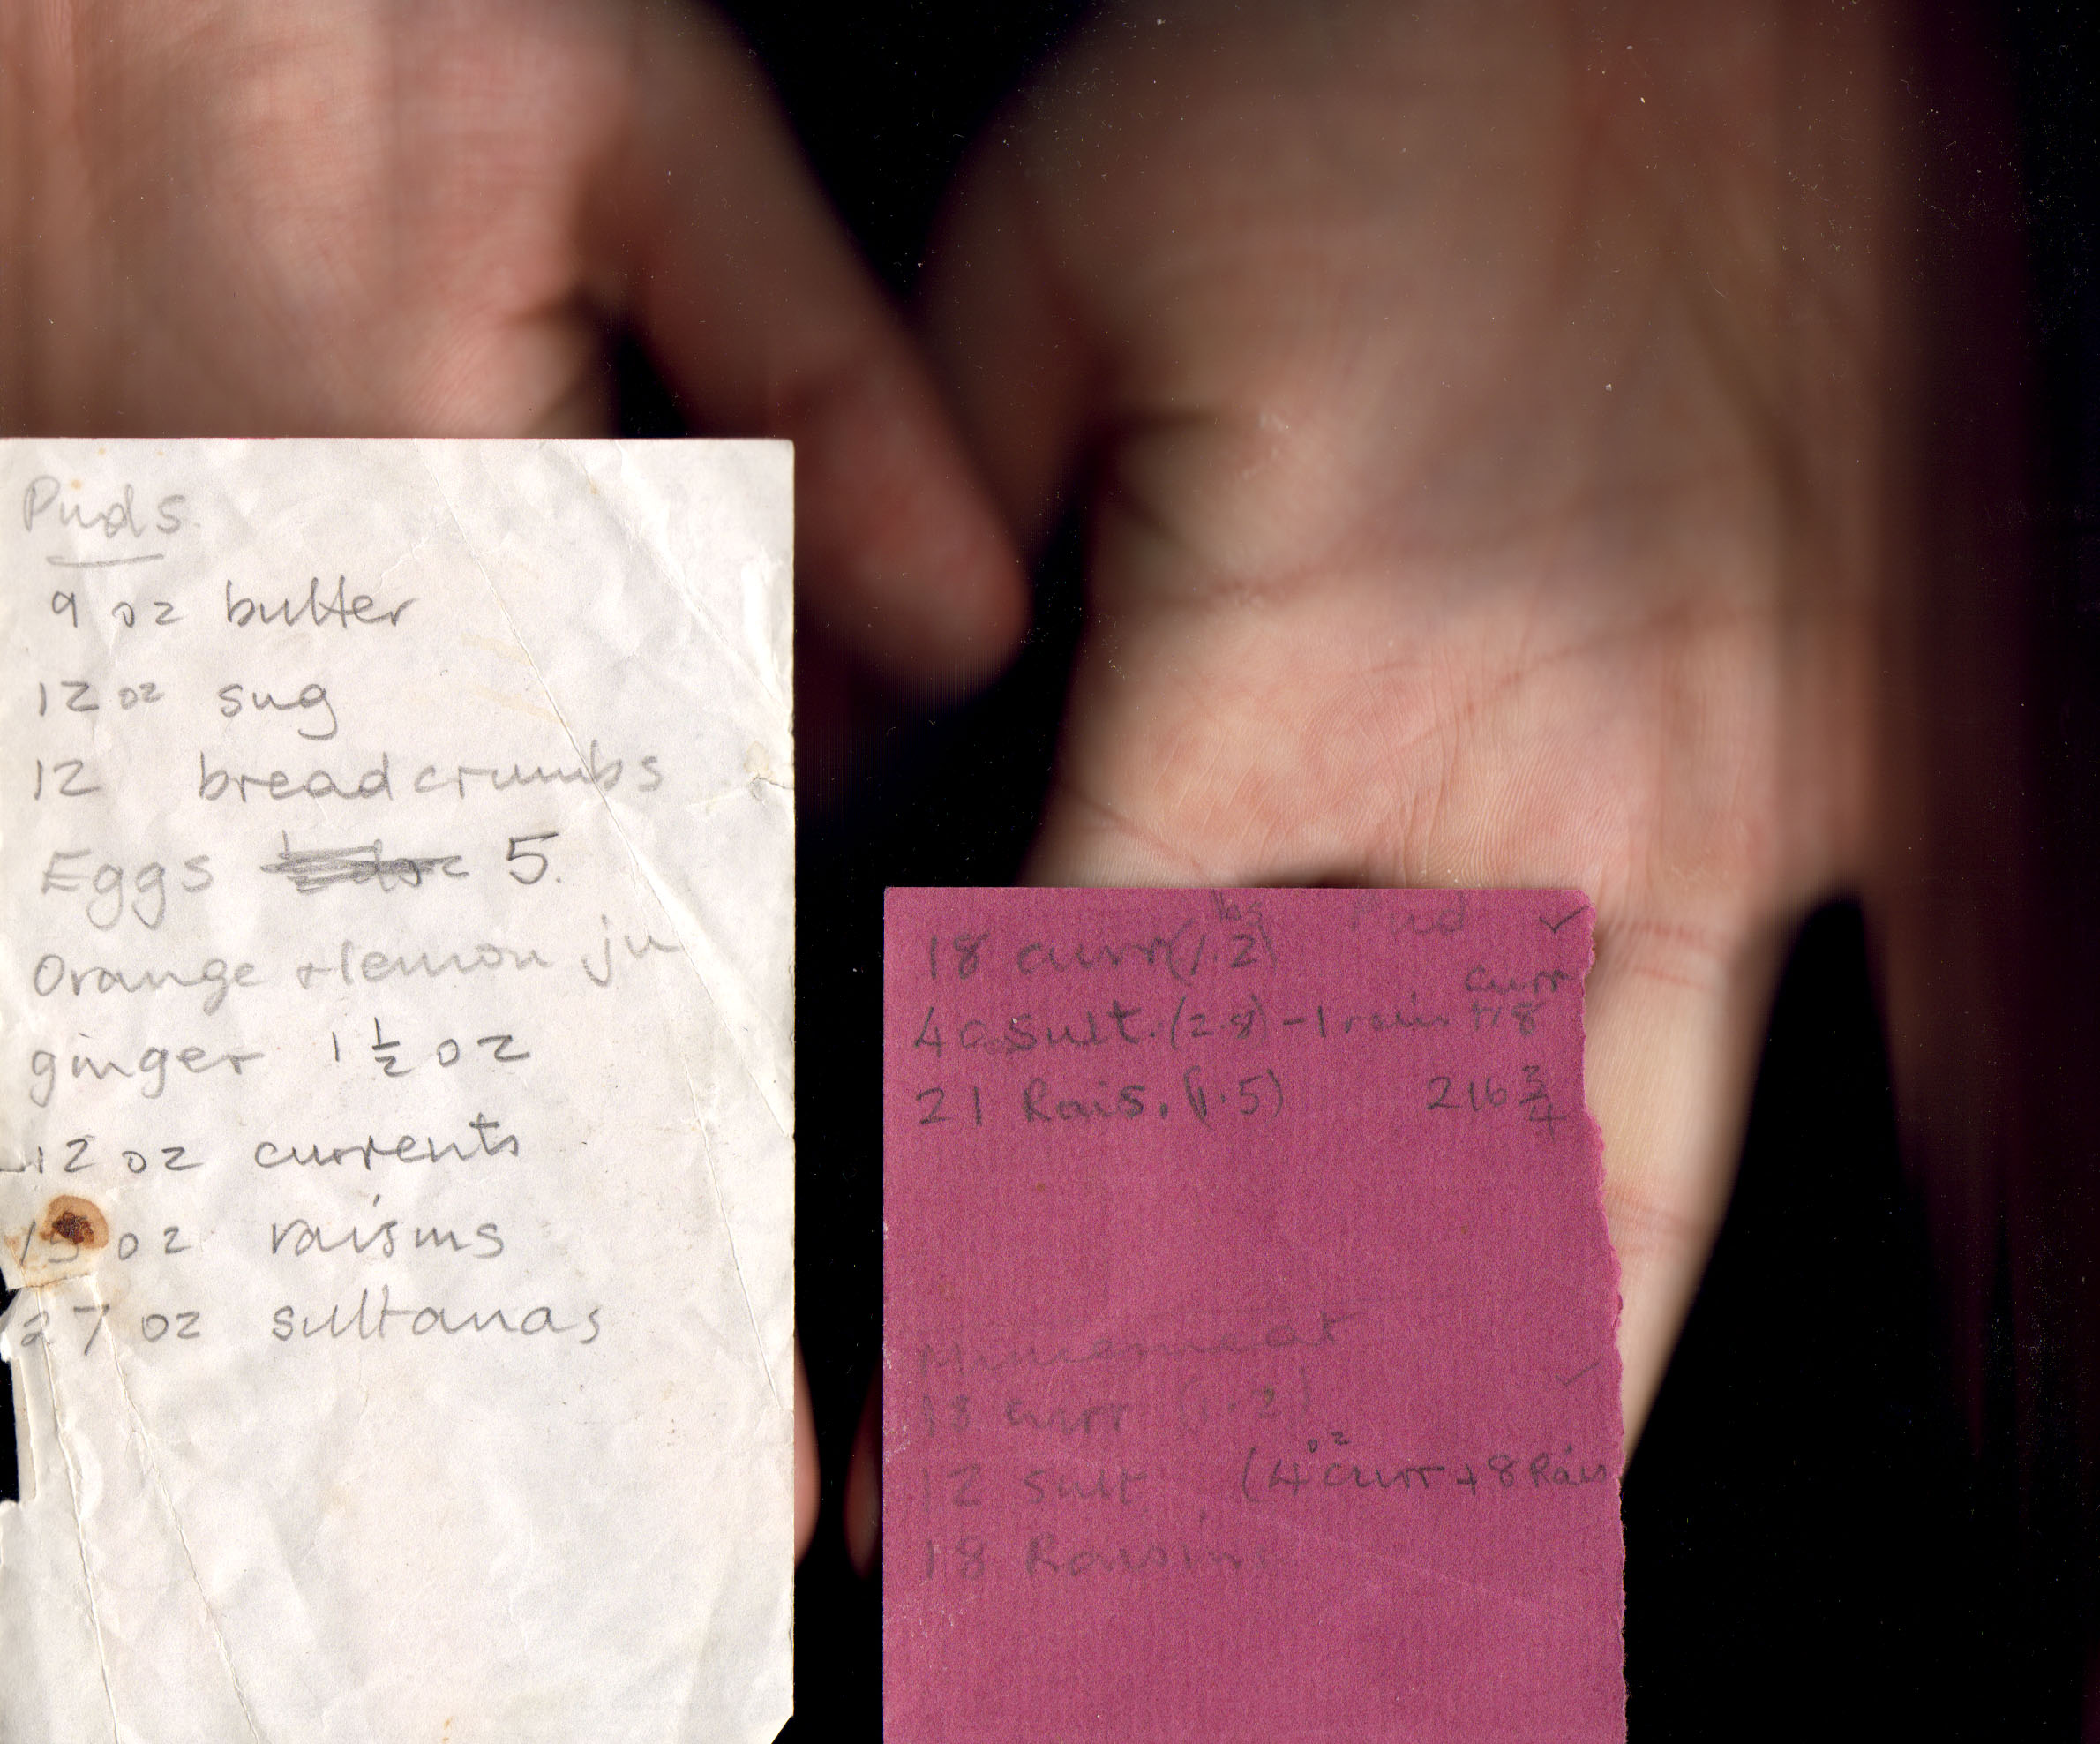 Puds.
9 oz butter
12 oz sug
12 breadcrumbs
Eggs 5.
Orange + lemon ju
ginger 1 1/2 oz
12 oz currents
15 oz raisins
27 oz sultanas
lbs Pud ✓
18 curr (1.2)
curr
40 Sult. (2.8) - 1 rais + 18
21 Rais. (1.5) 216 3/4
Mincemeat ✓
18 curr (1.2)
12 Sult (4 oz curr + 8 Rais
18 Raisins